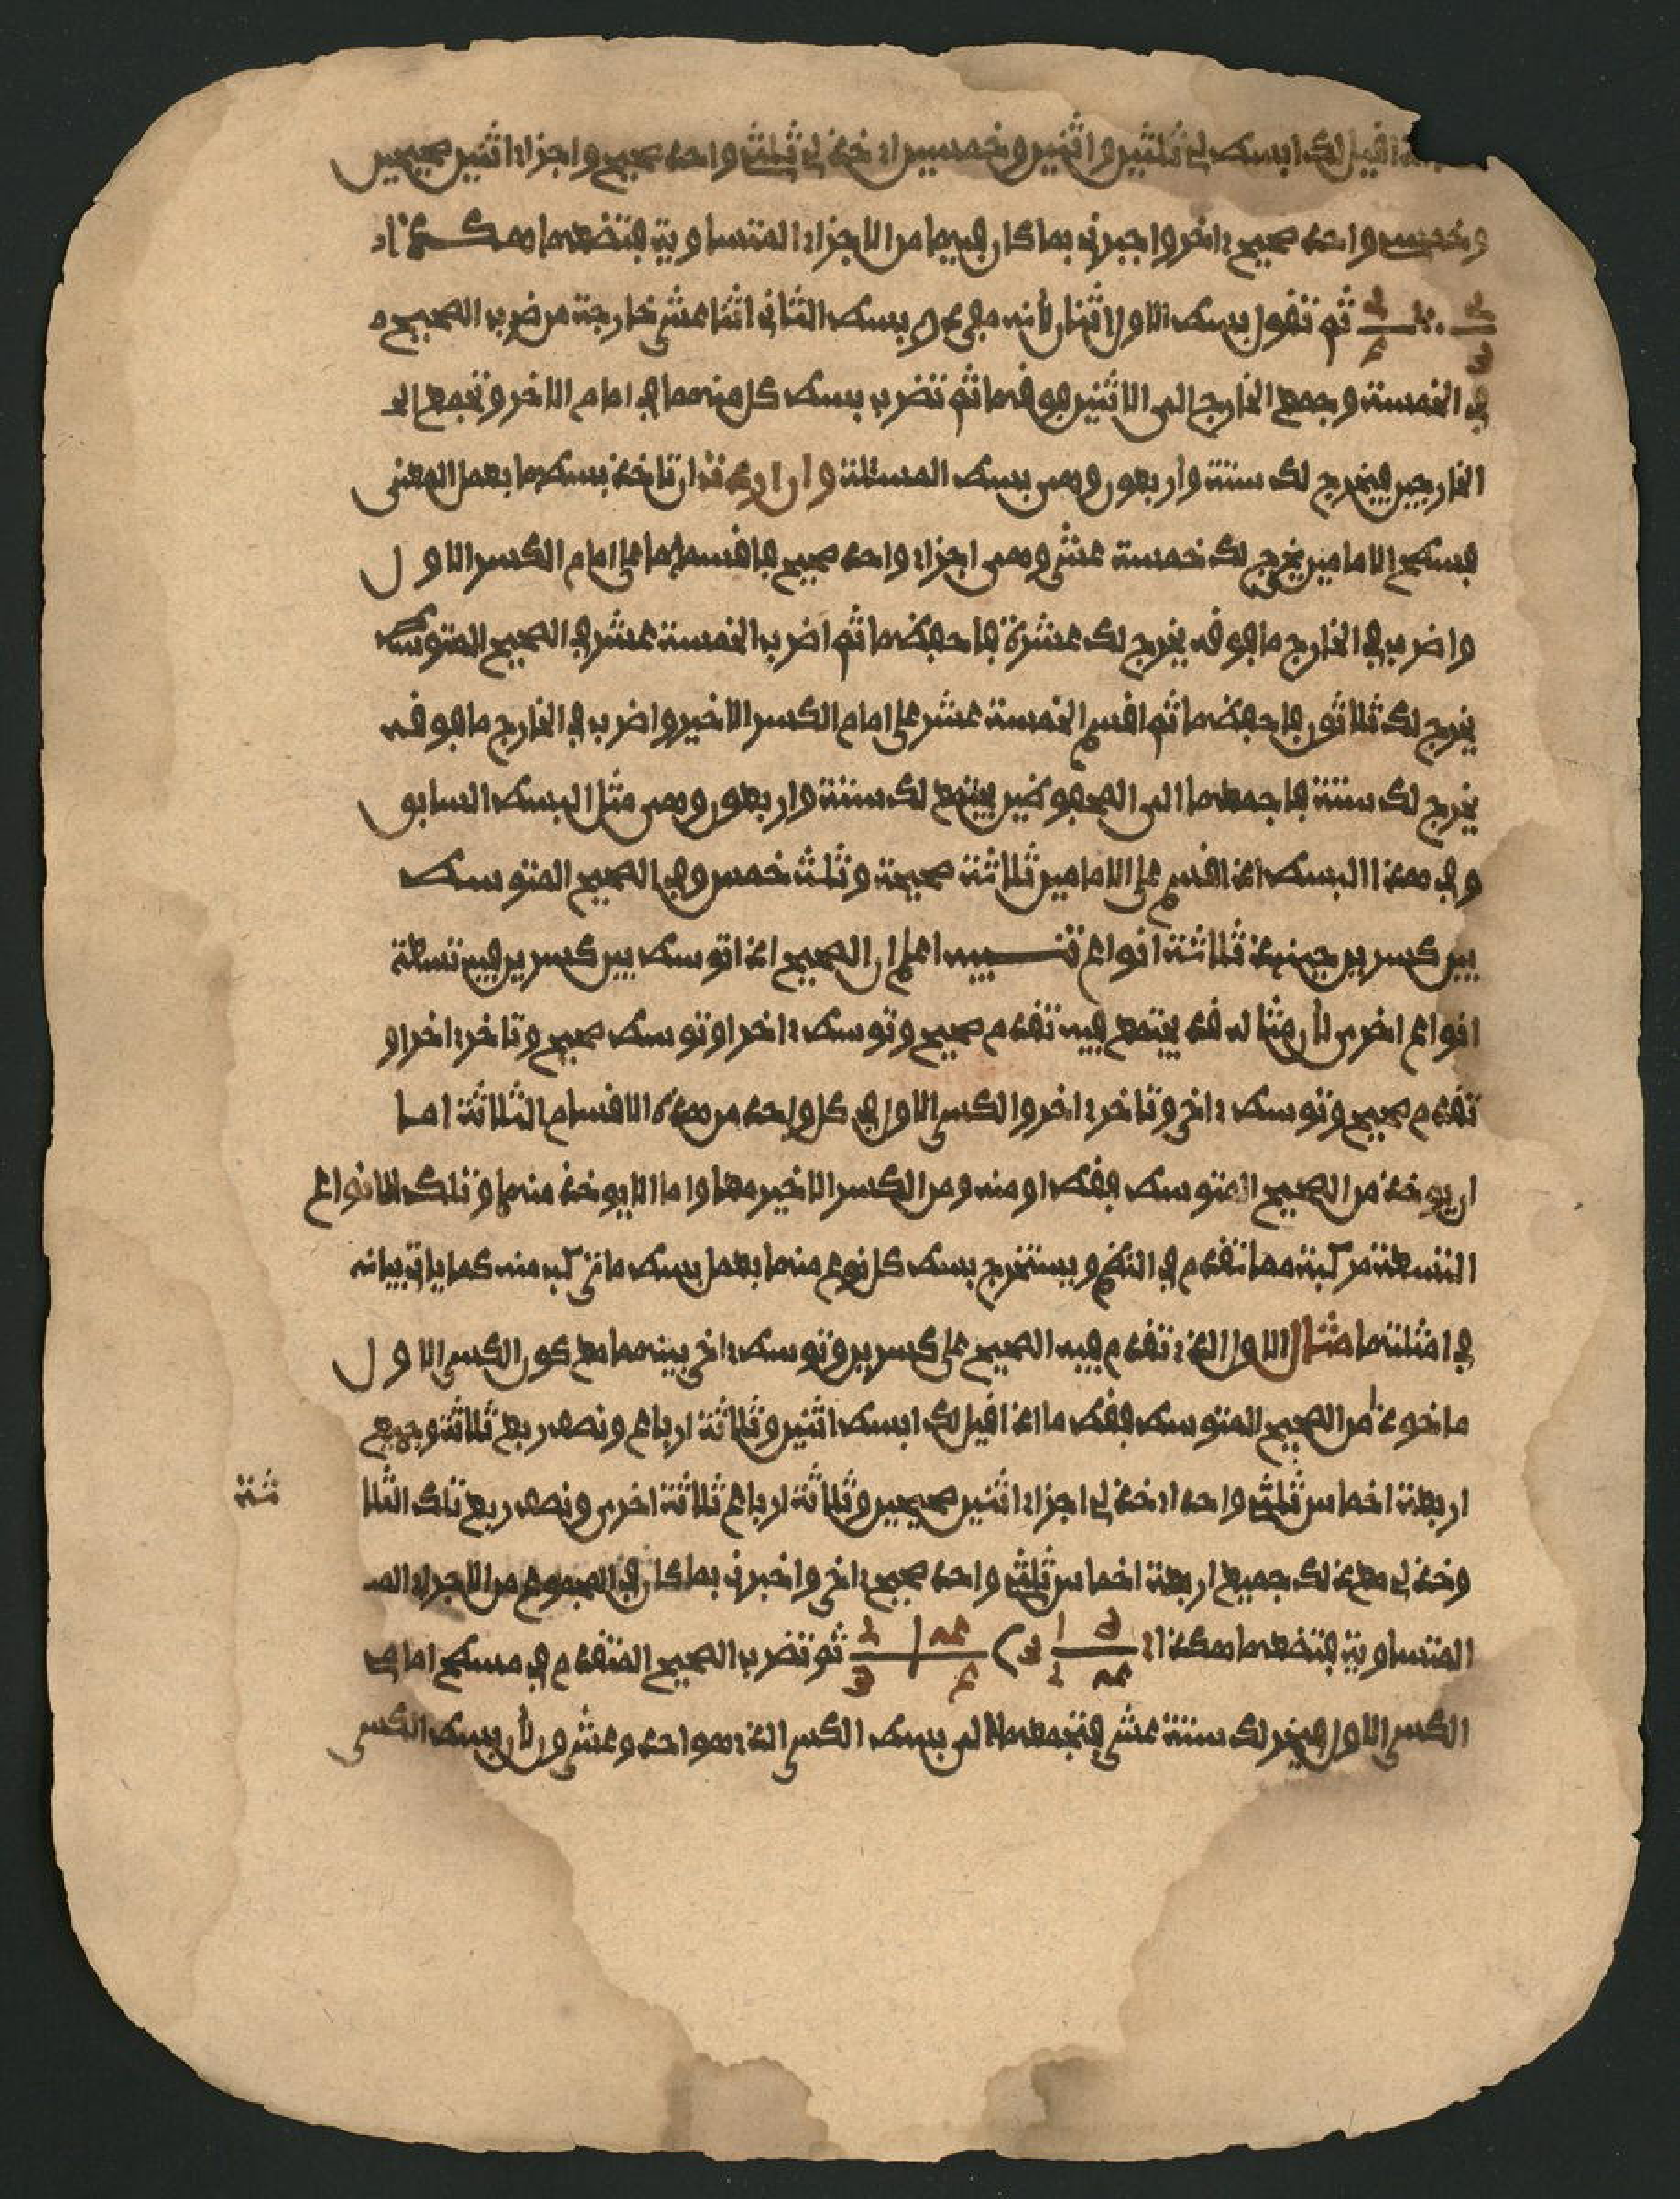 اذا قيل لك ابسط لي ثلثين واثنين وخمسين اي خذ لي ثلثي واحد صحيح واجزاء اثنين صحيحين
وخمسي واحد صحيح ءاخر واخبرني بما كان فيها من الاجزاء المتساوية فتضعها هكذا
ثم تقول بسط الاول اثنان لأنه مفرد وبسط الثاني اثنا عشر خارجة من ضرب الصحيح
في الخمسة وجمع الخارج الى الاثنين فوقها ثم تضرب بسط كل منهما في امام الاخر وتجمع
الخارجين فيخرج لك ستة واربعون وهي بسط المسئلة وان اردت ان تاخذ بسطها بعمل المعنى
فسطح الامامين يخرج لك خمسة عشر وهي اجزاء واحد صحيح فاقسمها على امام الكسر الاول
واضرب في الخارج ما فوقه يخرج لك عشرة فاحفظها ثم اضرب الخمسة عشر في الصحيح المتوسط
يخرج لك ثلاثون فاحفظها ثم اقسم الخمسة عشر على امام الكسر الاخير واضرب في الخارج ما فوقه
يخرج لك ستة فاجمعها الى المحفوظين يجتمع لك ستة واربعون وهي مثل البسط السابق
وفي هذا البسط اذا اقسم على الامامين ثلاثة صحيحة وثلث خمس وفي الصحيح المتوسط
بين كسرين حينئذ ثلاثة انواع تنبيه اعلم ان الصحيح اذا توسط بين كسرين فيه تسعة
انواع اخرى لأن مثاله قد يجتمع فيه تقدم صحيح وتوسط ءاخر او توسط صحيح وتاخر ءاخر او
تقدم صحيح وتوسط ءاخر وتاخر ءاخر والكسر الاول في كل واحد من هذه الاقسام الثلاثة اما
ان يوخذ من الصحيح المتوسط فقط او منه ومن الكسر الاخير معا واما الا يوخذ منهما وتلك الانواع
التسعة مركبة مما تقدم في النظم ويستخرج بسط كل نوع منها بعمل بسط ما تركب منه كما ياتي بيانه
في امثلتها مثال الاول الذي تقدم فيه الصحيح على كسرين وتوسط ءاخر بينهما مع كون الكسر الاول
ماخوذا من الصحيح المتوسط فقط ما اذا قيل لك ابسط اثنين وثلاثة ارباع ونصف ربع ثلاثة وجميع
اربعة اخماس ثلثي واحد اي خذ لي اجزاء اثنين صحيحين وثلاثة ارباع ثلاثة اخرى ونصف ربع تلك الثلا
ثة
وخذ لي مع ذلك جميع اربعة اخماس ثلثي واحد صحيح ءاخر واخبرني بما كان في المجموع من الاجزاء
المتساوية فتضعها هكذا ثم تضرب الصحيح المتقدم في مسطح امامي
الكسر الاول فيخرج لك ستة عشر فتجمعها الى بسط الكسر الذي هو واحد وعشرون لأن بسط الكسر